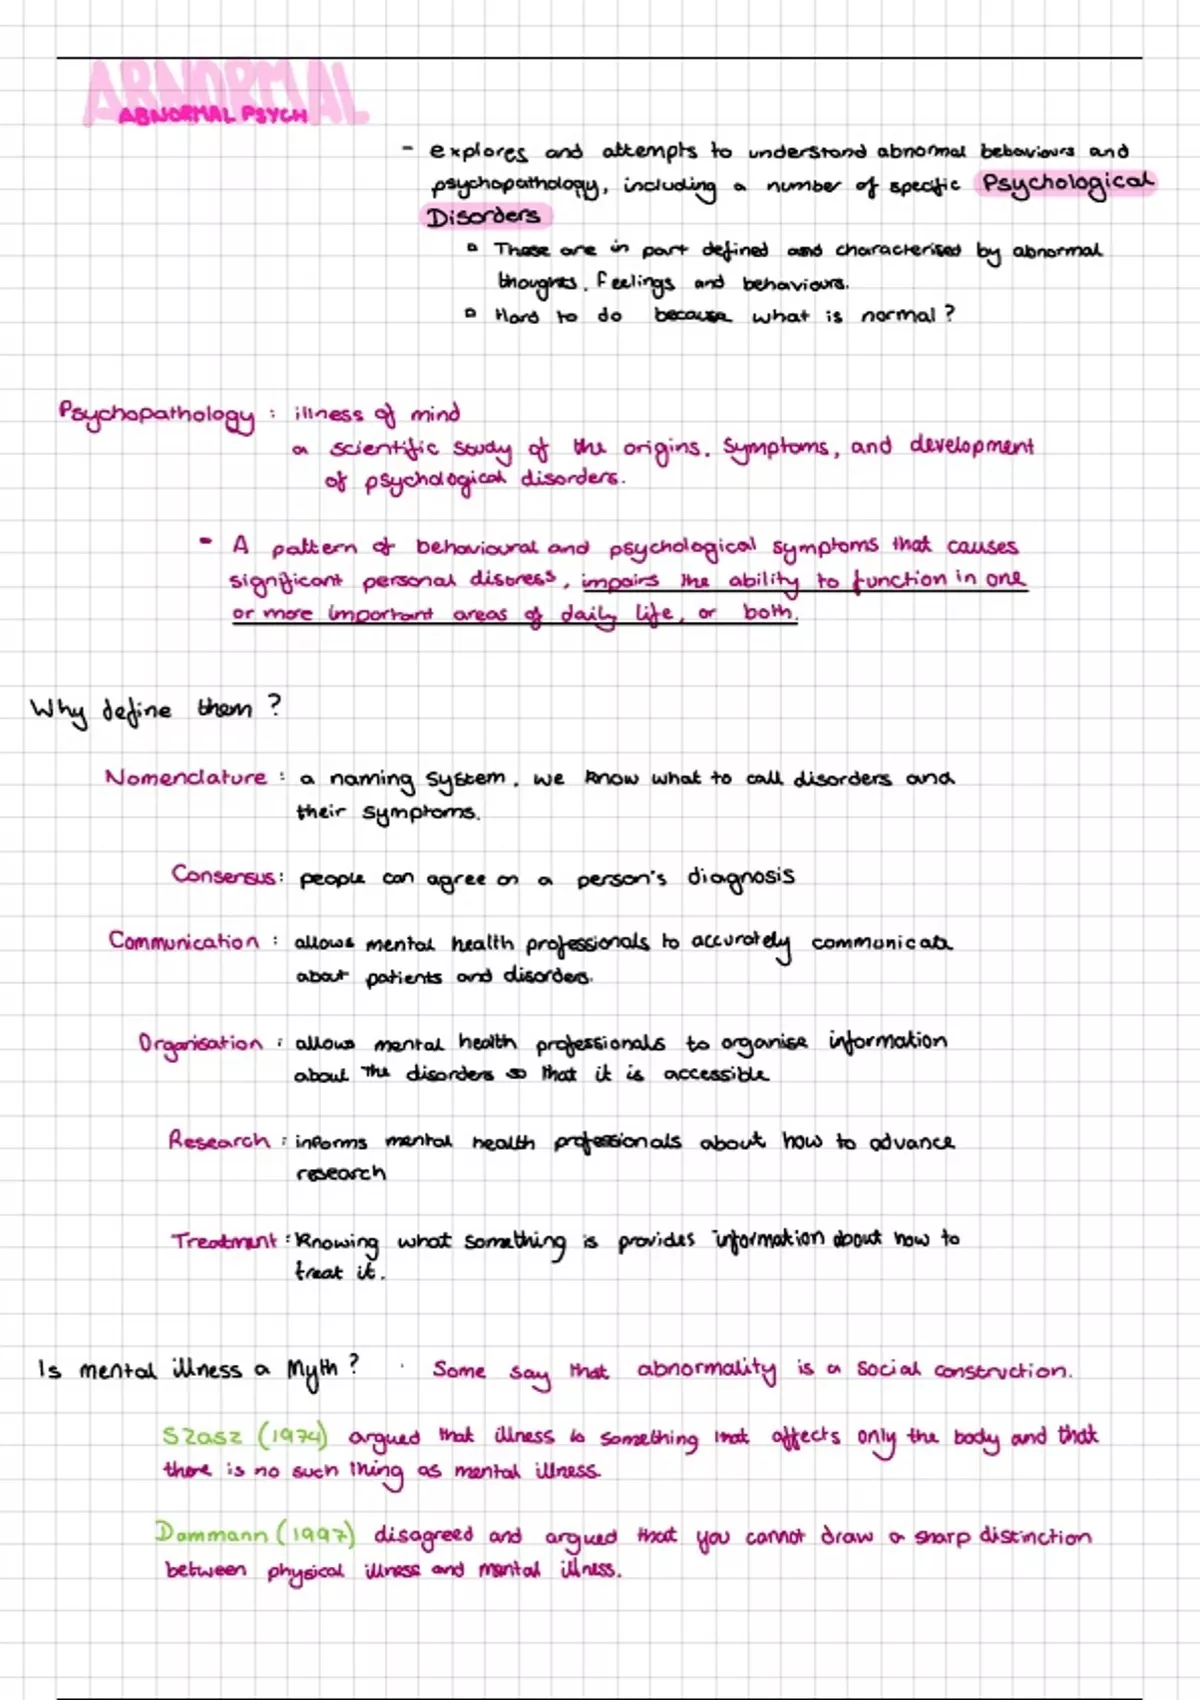 ABNORMAL
ABNORMAL PSYCH
- explores and attempts to understand abnormal behaviours and
psychopathology, including a number of specific Psychological
Disorders
▫ These are in part defined and characterised by abnormal
thoughts, feelings and behaviours.
▫ Hard to do because what is normal?
Psychopathology : illness of mind
a scientific study of the origins, symptoms, and development
of psychological disorders.
- A pattern of behavioural and psychological symptoms that causes
significant personal distress, impairs the ability to function in one
or more important areas of daily life, or both.
Why define them ?
Nomenclature : a naming system, we know what to call disorders and
their symptoms.
Consensus: people can agree on a person's diagnosis
Communication : allows mental health professionals to accurately communicate
about patients and disorders.
Organisation : allows mental health professionals to organise information
about the disorders so that it is accessible
Research : informs mental health professionals about how to advance
research
Treatment : Knowing what something is provides information about how to
treat it.
Is mental illness a Myth ? · Some say that abnormality is a social construction.
Szasz (1974) argued that illness is something that affects only the body and that
there is no such thing as mental illness.
Dammann (1997) disagreed and argued that you cannot draw a sharp distinction
between physical illness and mental illness.